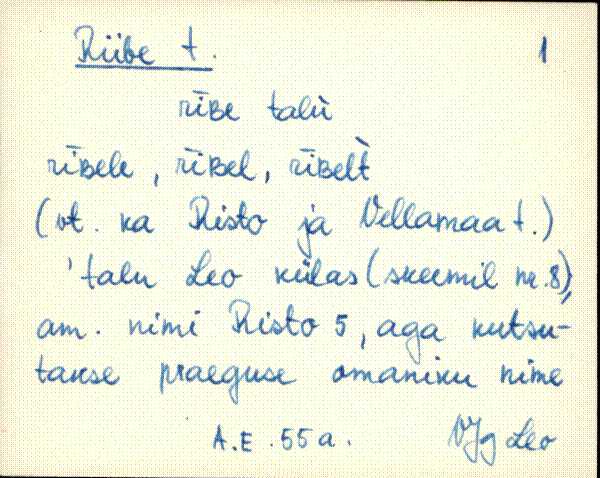 Riibe t. 1
rīʙe talù
rīʙele, rīʙel, rīʙelt̀
(vt. ka Risto ja Vellamaa t.)
'talu Leo külas (skeemil nr. 8),
am. nimi Risto 5, aga kutsu-
takse praeguse omaniku nime
A.E. 55 a. VJg Leo